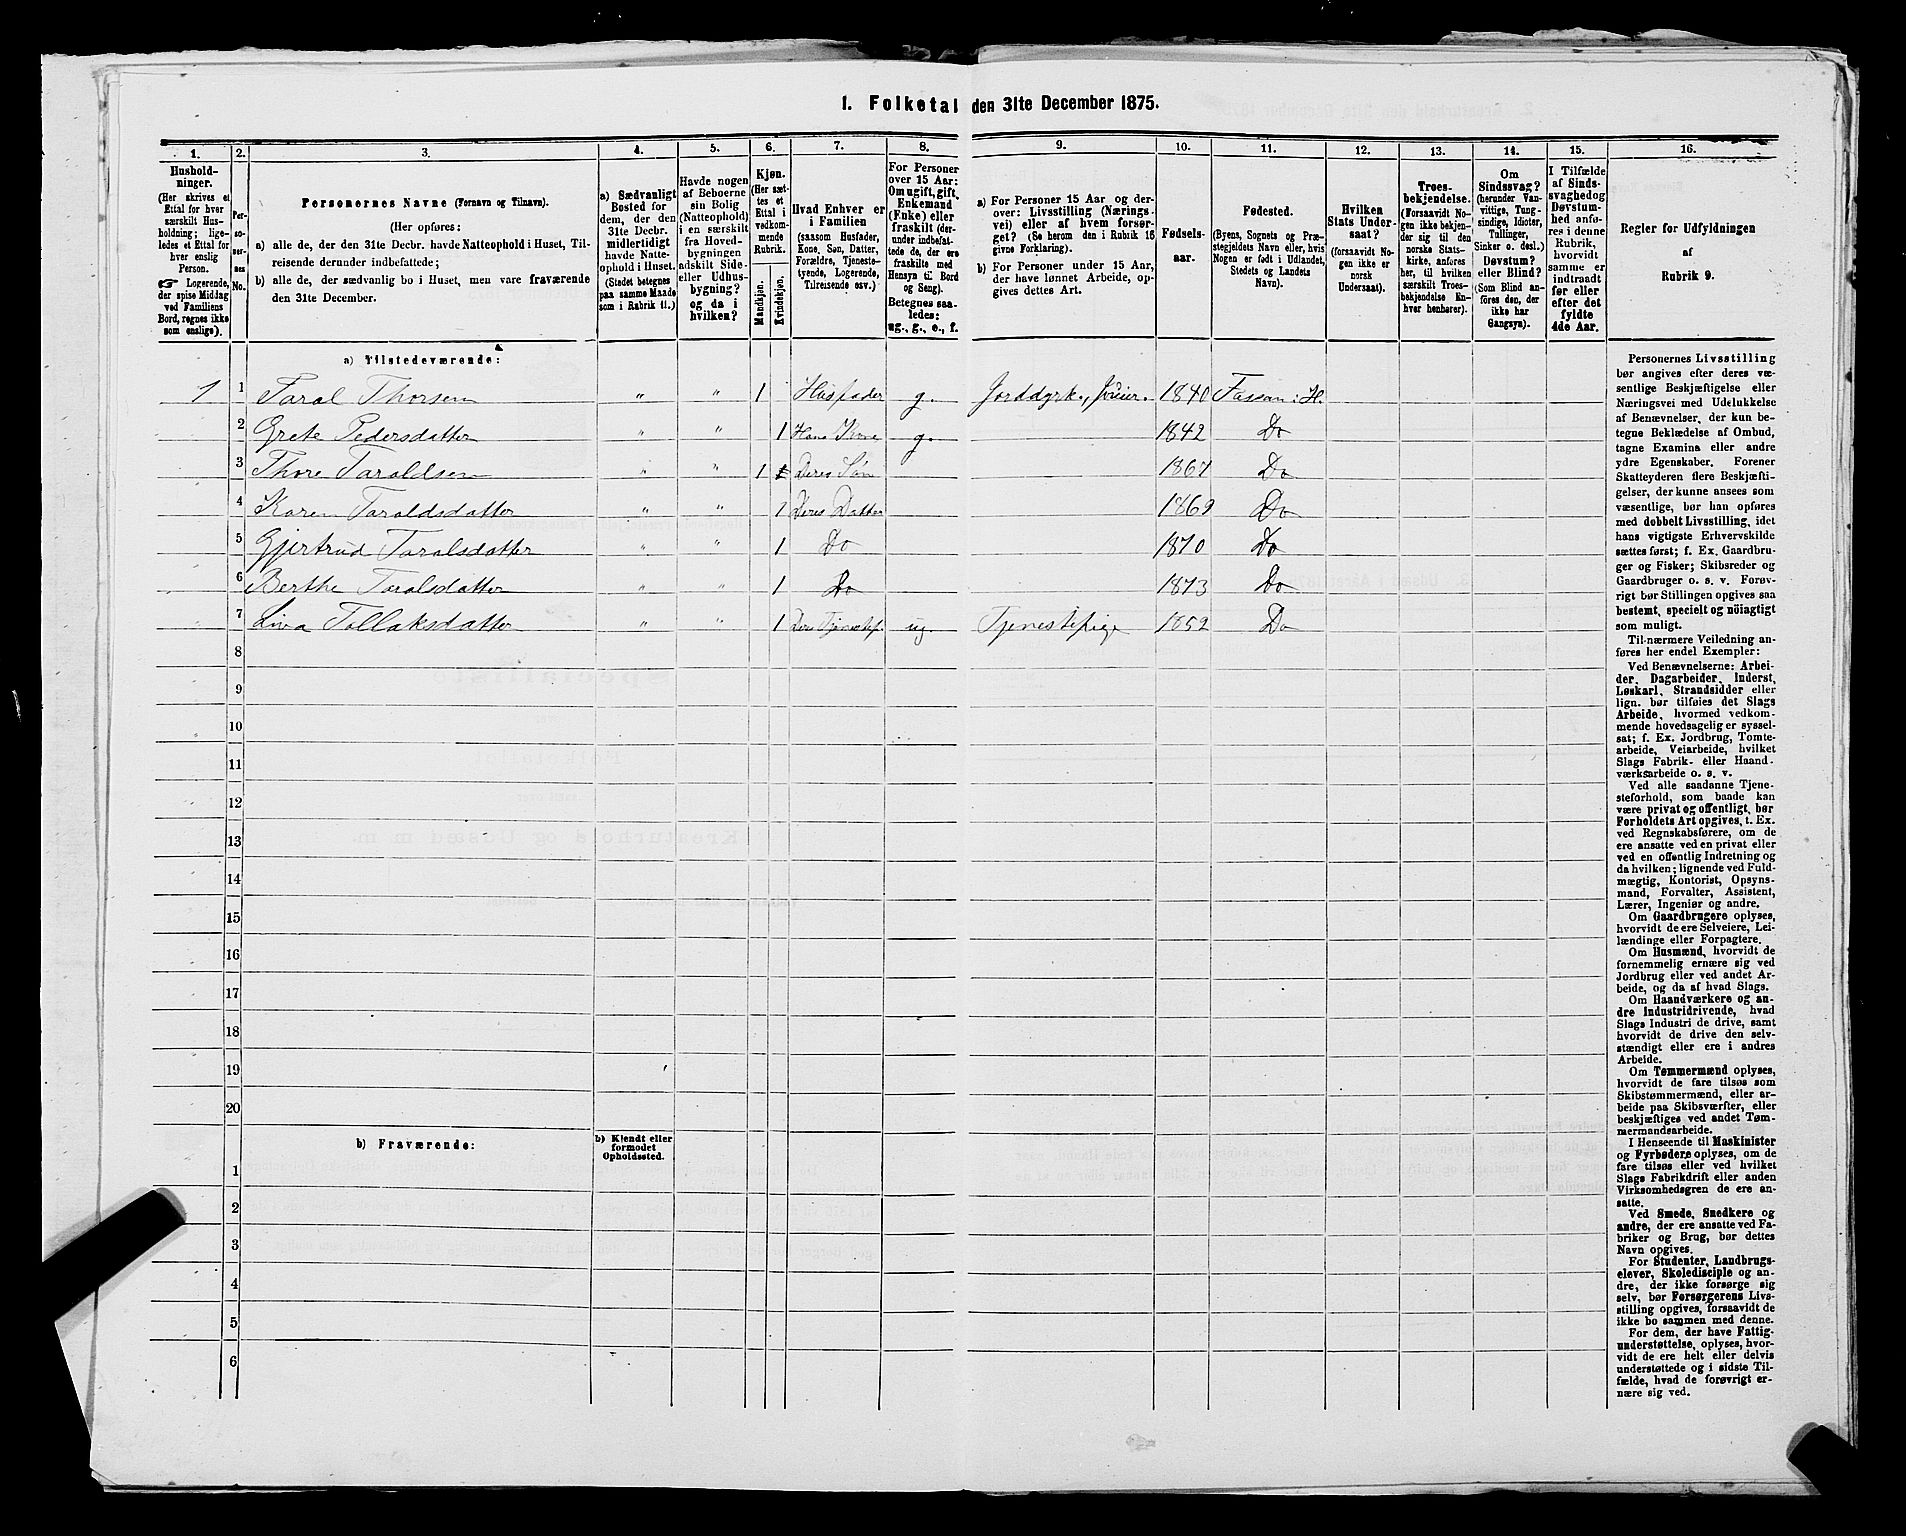 1. Folketal den 31te December 1875.
1.
Hushold-
ninger.
(Her skrives et
Ettal for hver
særskilt Hus-
holdning; lige-
ledes et Ettal for
hver enslig
Person.
☞ Logerende,
der spise Middag
ved Familiens
Bord, regnes ikke
som enslige).
2.
Per-
soner-
nes
No.
3.
Personernes Navne (Fornavn og Tilnavn).
(Her opføres:
a) alle de, der den 31te Decbr. havde Natteophold i Huset, Til-
reisende derunder indbefattede;
b) alle de, der sædvanlig bo i Huset, men vare fraværende
den 31te December.
4.
a) Sædvanligt
Bosted for
dem, der den
31te Decbr.
midlertidigt
havde Natte-
ophold i Huset.
(Stedet betegnes
paa samme Maade
som i Rubrik 11.)
5.
Havde nogen
af Beboerne
sin Bolig
(Natteophold)
i en særskilt
fra Hoved-
bygningen
adskilt Side-
eller Udhus-
bygning?
og da i
hvilken?
6.
Kjøn.
(Her sæt-
tes et
Ettal i
vedkom-
mende
Rubrik.
Mandkjøn.
Kvindekjøn.
7.
Hvad Enhver er
i Familien
(saasom Husfader,
Kone, Søn, Datter,
Forældre, Tjeneste-
tyende, Logerende,
Tilreisende osv.)
8.
For Personer
over 15 Aar:
Om ugift, gift,
Enkemand
(Enke) eller
fraskilt (der-
under indbefat-
tede de, der ere
fraskilte med
Hensyn til Bord
og Seng).
Betegnes saa-
ledes:
ug., g., e., f.
9.
a) For Personer 15 Aar og der-
over: Livsstilling (Nærings-
vei) eller af hvem forsør-
get? (Se herom den i Rubrik 16
givne Forklaring).
b) For Personer under 15 Aar,
der have lønnet Arbeide, op-
gives dettes Art.
10.
Fødsels-
aar.
11.
Fødested.
(Byens, Sognets og Præ-
stegjeldets Navn eller, hvis
Nogen er født i Udlandet,
Stedets og Landets
Navn).
12.
Hvilken
Stats Under-
saat?
(forsaavidt No-
gen ikke er
norsk
Undersaat).
13.
Troes-
bekjendelse.
(Forsaavidt No-
gen ikke bekjen-
der sig til den
norske Stats-
kirke, anføres
her, til hvilken
særskilt Troes-
bekjendelse En-
hver henhører).
14.
Om
Sindssvag?
(herunder Van-
vittige, Tung-
sindige, Idioter,
Tullinger,
Sinker o. desl.)
Døvstum?
eller Blind?
(Som Blind an-
føres den, der
ikke har
Gangsyn).
15.
I Tilfælde
af Sinds-
svaghed og
Døvstum-
hed anfø-
res i denne
Rubrik,
hvorvidt
samme er
indtraadt
før eller
efter det
fyldte
4de Aar.
16.
Regler for Udfyldningen
af
Rubrik 9.
a) Tilstedeværende:
1 1 Taral Thorsen " " 1 Husfader g. Jorddyrk., 1840 Fossan i H.
2 Grete Pedersdatter " " 1 Hans Kone g. 1842 Do
3 Thore Taraldsen " " 1 Deres Søn 1867 Do
4 Karen Taraldsdatter " " 1 Deres Datter 1869 Do
5 Gjertrud Taralsdatter " " 1 Do 1870 Do
6 Berthe Taralsdatter " " 1 Do 1873 Do
7 Liva Tollaksdatter " " 1 Tjenestep. ug. Tjenestepige 1852 Do
8
9
10
11
12
13
14
15
16
17
18
19
20
b) Fraværende:
b) Kjendt eller
formodet
Opholdssted.
1
2
3
4
5
6
Personernes Livsstilling
bør angives efter deres væ-
sentlige Beskjæftigelse eller
Næringsvei med Udelukkelse
af Benævnelser, der kun be-
tegne Beklædelse af Ombud,
tagne Examina eller andre
ydre Egenskaber. Forener
Skatteyderen flere Beskjæfti-
gelser, der kunne ansees som
væsentlige, bør han opføres
med dobbelt Livsstilling, idet
hans vigtigste Erhvervskilde
sættes først; f. Ex. Gaardbru-
ger og Fisker; Skibsreder og
Gaardbruger o. s. v. Forøv-
rigt bør Stillingen opgives saa
bestemt, specielt og nöiagtigt
som muligt.
Til nærmere Veiledning an-
føres her endel Exempler:
Ved Benævnelserne: Arbei-
der, Dagarbeider, Inderst,
Løskarl, Strandsidder eller
lign. bør tilføies det Slags
Arbeide, hvormed vedkom-
mende hovedsagelig er syssel-
sat; f. Ex. Jordbrug, Tomte-
arbeide, Veiarbeide, hvilket
Slags Fabrik- eller Haand-
værksarbeide o. s. v.
Ved alle saadanne Tjene-
steforhold, som baade kan
være privat og offentligt, bør
Forholdets Art opgives, t. Ex.
ved Regnskabsførere, om de
ere ansatte ved en privat eller
ved en offentlig Indretning og
da hvilken; lignende ved Fuld-
mægtig, Kontorist, Opsyns-
mand, Forvalter, Assistent,
Lærer, Ingeniør og andre.
Om Gaardbrugere oplyses,
hvorvidt de ere Selveiere, Lei-
lændinge eller Forpagtere.
Om Husmænd, hvorvidt de
fornemmelig ernære sig ved
Jordbrug eller ved andet Ar-
beide, og da af hvad Slags.
Om Haandværkere og an-
dre Industridrivende, hvad
Slags Industri de drive, samt
hvorvidt de drive den selv-
stændigt eller ere i andres
Arbeide.
Om Tømmermænd oplyses,
hvorvidt de fare tilsøs som
Skibstømmermænd, eller ar-
beide paa Skibsværfter, eller
beskjæftiges ved andet Tøm-
mermandsarbeide.
I Henseende til Maskinister
og Fyrbødere oplyses, om de
fare tilsøs eller ved hvilket
Slags Fabrikdrift eller anden
Virksomhedsgren de ere an-
satte.
Ved Smede, Snedkere og
andre, der ere ansatte ved Fa-
briker og Brug, bør dettes
Navn opgives.
For Studenter, Landbrugs-
elever, Skoledisciple og an-
dre, der ikke forsørge sig
selv, bør Forsørgerens Livs-
stilling opgives, forsaavidt de
ikke bo sammen med denne.
For dem, der have Fattig-
understøttelse, oplyses, hvor-
vidt de ere helt eller delvis
understøttede og i sidste Til-
fælde, hvad de forøvrigt er-
nære sig ved.